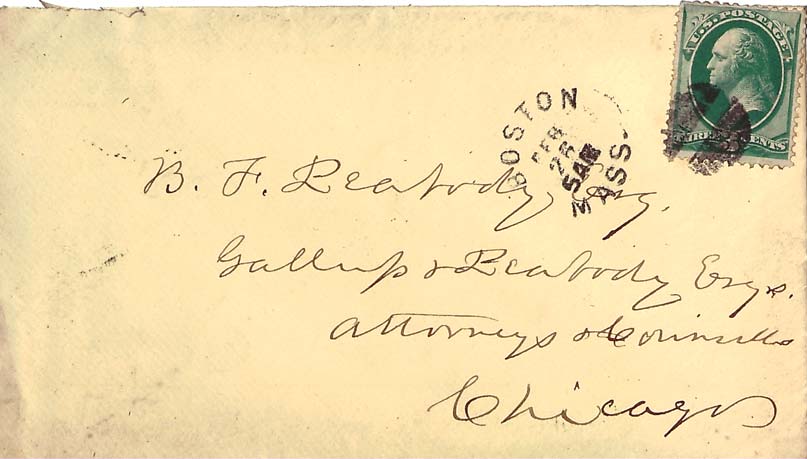 U.S. POSTAGE
THREE CENTS
BOSTON
FEB
26
5 AM
MASS.
B. F. Peabody Esq.
Gallup & Peabody Esqs.
Attorneys & Counsellors
Chicago